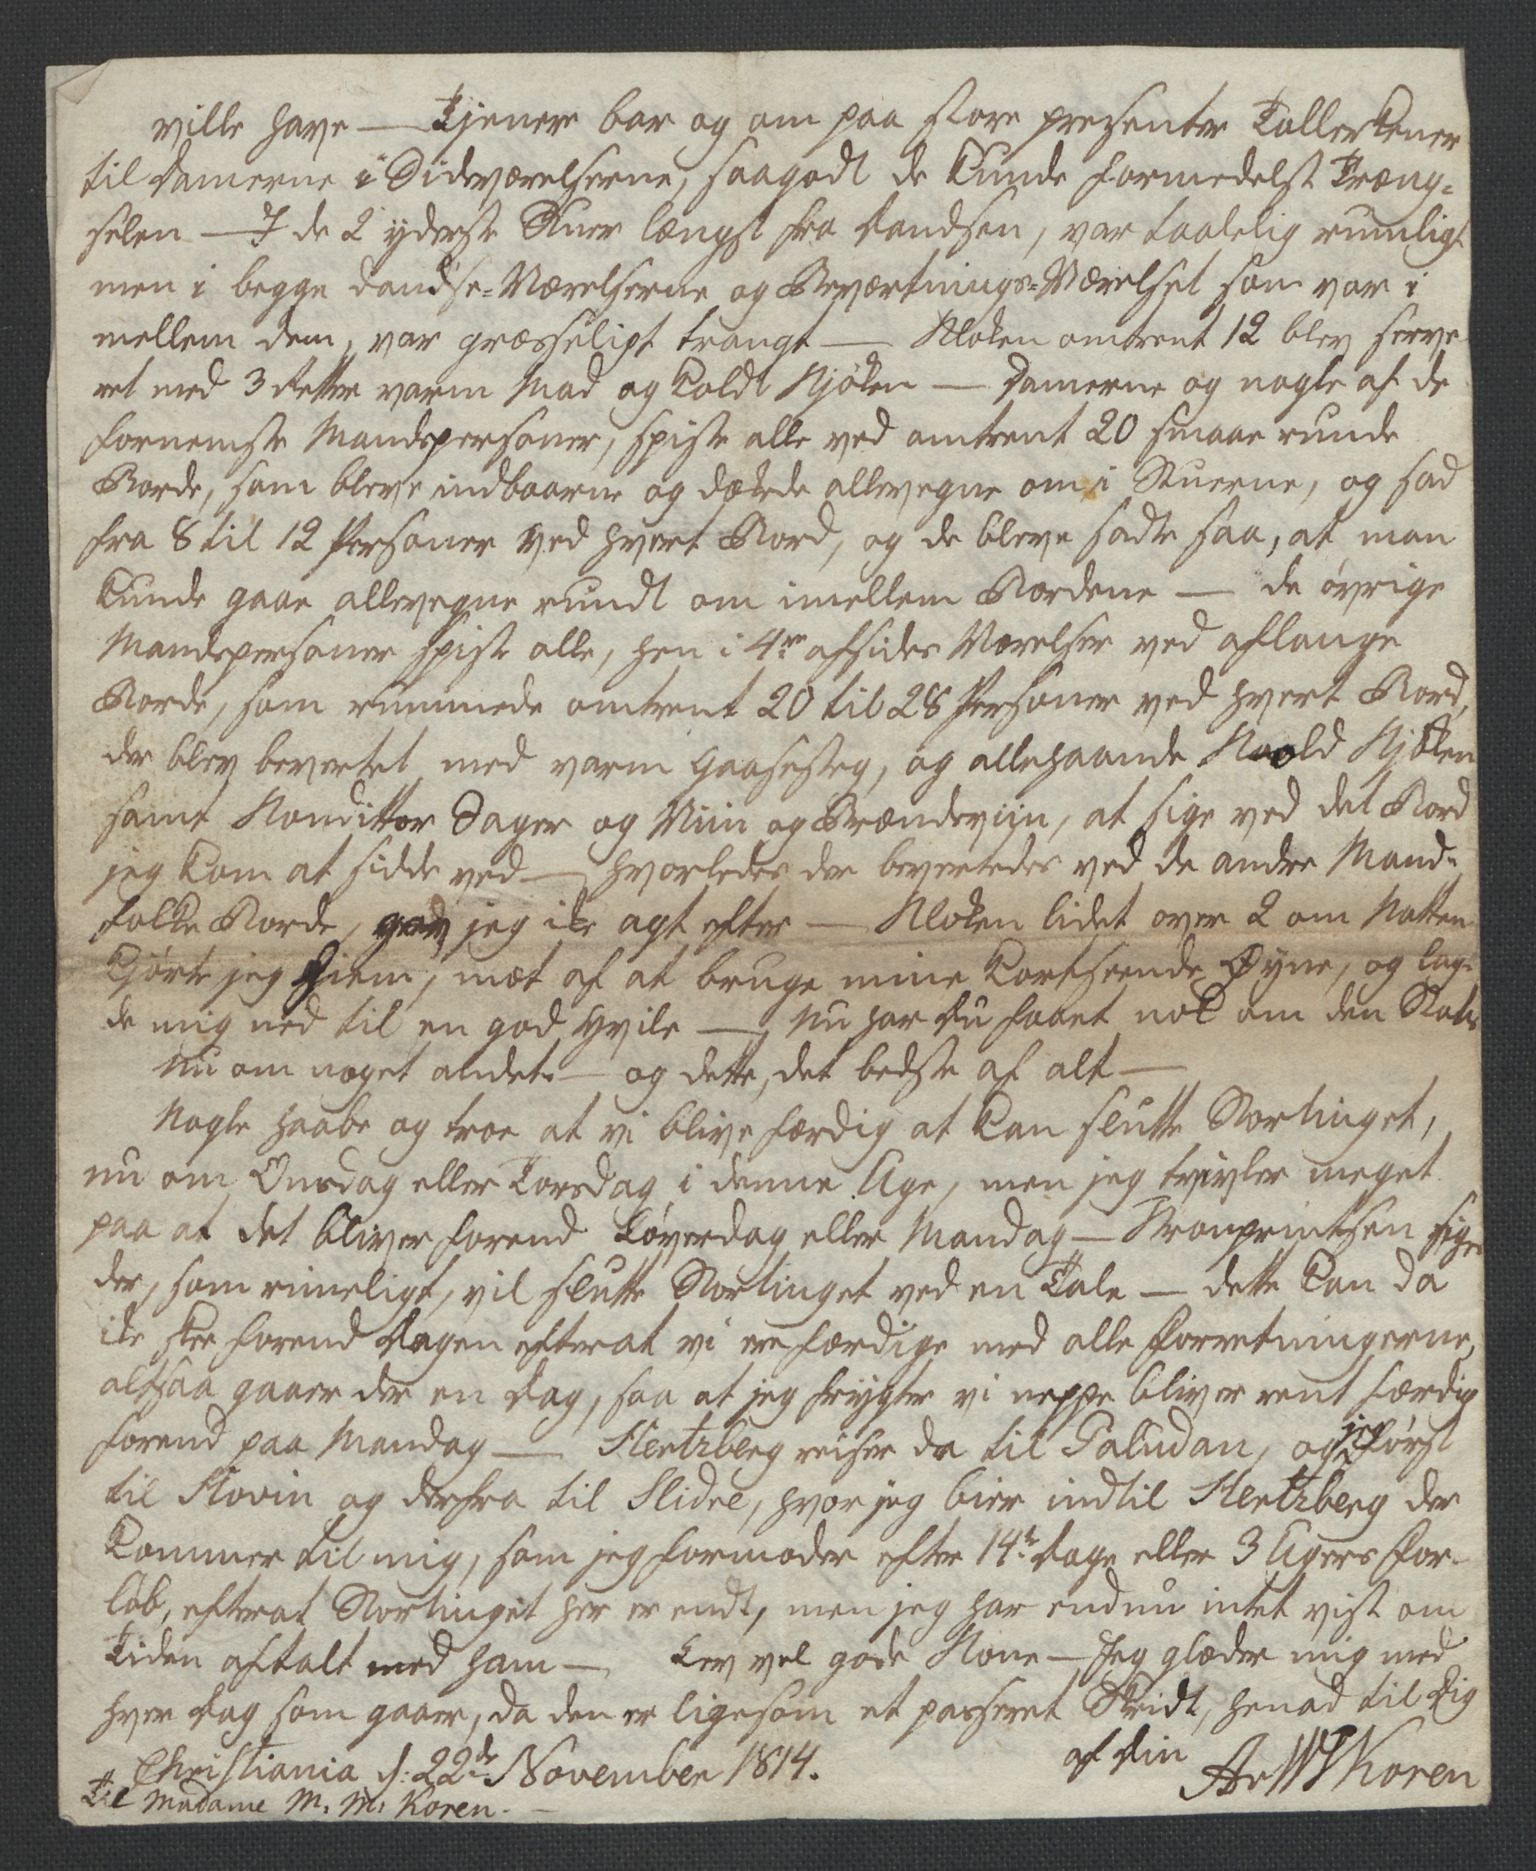 ville have — Tjenere bar og om paa store presenter Tallerkener
til Damerne i Sideværelserne, saagodt de kunde formedelst Træng-
selen — I de 2 yderste Stuer længst fra Dandsen, var taalelig rumligt
men i begge Dandse-Værelserne og Beværtnings-Værelset som var i
mellem dem, var græsseligt trangt — Kloken omtrent 12 blev serve
ret med 3 Retter varm Mad og koldt Kjøken — Damerne og nogle af de
fornemste Mandspersoner, spiste alle ved omtrent 20 smaae runde
Borde, som bleve indbaarne og dækede allevegne om i Stuerne, og sad
fra 8 til 12 Personer ved hvert Bord, og de bleve sadte saa, at man
kunde gaae allevegne rundt om imellem Bordene — de øvrige
Mandspersoner spiste alle, hen i 4re afsides Værelser ved aflange
Borde, som rummede omtrent 20 til 28 Personer ved hvert Bord,
der blev bevertet med varm Gaasesteg, og allehaande Koold Kjøken
samt Kondittor Sager og Viin og Brændeviin, at sige ved det Bord
jeg kom at sidde ved —, hvorledes der bevertedes ved de andre Mand-
folke Borde, gav jeg ike agt efter — Kloken lidet over 2 om Natten
kjørte jeg hiem, mæt af at bruge mine kortseende Øyne, og lag-
de mig ned til en god Hvile —, Nu har du faaet nok om den Stads
Nu om noget andet — og dette, det bedste af alt —
Nogle haabe og troe at vi blive færdig at kan slutte Storthinget,
nu om Onsdag eller Torsdag i denne Uge, men jeg tvivler meget
paa at det bliver forend Løverdag eller Mandag — Kronprintsen siges
der, som rimeligt, vil slutte Storthinget ved en Tale — dette kan da
ike skee forend Dagen efterat vi ere færdige med alle Forretningerne,
altsaa gaaer der en Dag, saa at jeg frygter vi neppe bliver rent færdig
forend paa Mandag — Hertzberg reiser da til Paludan, og jeg først
til Hovin og derfra til Slidre, hvor jeg bier indtil Hertzberg der
kommer til mig, som jeg formoder efter 14 Dage eller 3 Ugers For-
løb, efterat Storthinget her er endt, men jeg har endnu intet vist om
Tiden aftalt med ham — Lev vel gode Kone — Jeg glæder mig med
hver Dag som gaaer, da den er ligesom et passeret Skridt, henad til Dig
af Din
Christiania d: 22de November 1814. Ar W Koren
Til Madame M. M. Koren. —